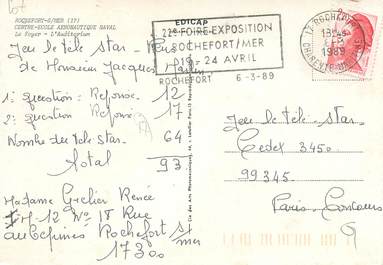 ROCHEFORT-S/MER (17)
CENTRE-ECOLE AERONAUTIQUE NAVAL
Le Foyer - L'Auditorium
EDICAP
22e FOIRE-EXPOSITION
ROCHEFORT/MER
19 - 24 AVRIL
ROCHEFORT 6-3-89
17 ROCHEFORT
13H45
6-3
1989
CHARENTE-MME
Jeu de télé star -
de Monsieur Jacques
1: question: Reponse. 12
2: question Reponse 17
Nombre du télé star 64
Total 93
Madame Grelier Renée
H 12 No 18 Rue
Rochefort S/
mer
17300
Jeu de télé-star-
Cedex 3450
99345
Paris-Concours